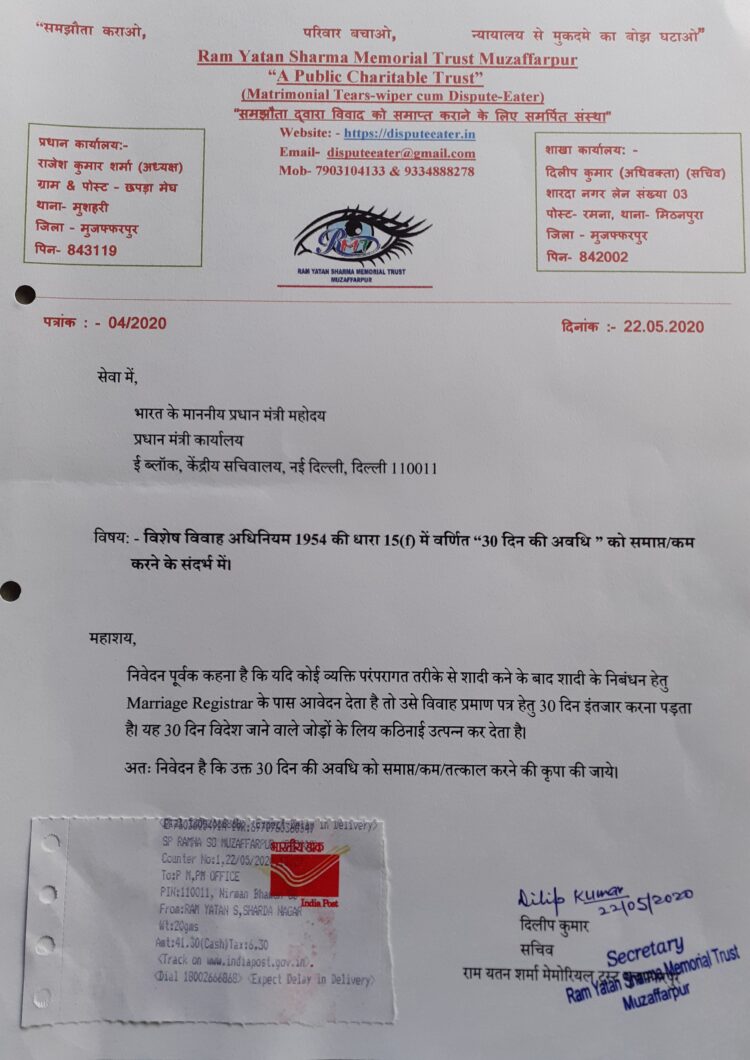 “समझौता कराओ, परिवार बचाओ, न्यायालय से मुकदमे का बोझ घटाओ”
Ram Yatan Sharma Memorial Trust Muzaffarpur
“A Public Charitable Trust”
(Matrimonial Tears-wiper cum Dispute-Eater)
“समझौता द्वारा विवाद को समाप्त कराने के लिए समर्पित संस्था”
Website: - https://disputeeater.in
Email- disputeeater@gmail.com
Mob- 7903104133 & 9334888278
प्रधान कार्यालय:-
राजेश कुमार शर्मा (अध्यक्ष)
ग्राम & पोस्ट - छपड़ा मेघ
थाना- मुशहरी
जिला - मुजफ्फरपुर
पिन- 843119
शाखा कार्यालय: -
दिलीप कुमार (अधिवक्ता) (सचिव)
शारदा नगर लेन संख्या 03
पोस्ट- रमना, थाना- मिठनपुरा
जिला - मुजफ्फरपुर
पिन- 842002
RMT
RAM YATAN SHARMA MEMORIAL TRUST
MUZAFFARPUR
पत्रांक : - 04/2020
दिनांक :- 22.05.2020
सेवा में,
भारत के माननीय प्रधान मंत्री महोदय
प्रधान मंत्री कार्यालय
ई ब्लॉक, केंद्रीय सचिवालय, नई दिल्ली, दिल्ली 110011
विषय: - विशेष विवाह अधिनियम 1954 की धारा 15(f) में वर्णित “30 दिन की अवधि ” को समाप्त/कम
करने के संदर्भ में।
महाशय,
निवेदन पूर्वक कहना है कि यदि कोई व्यक्ति परंपरागत तरीके से शादी कने के बाद शादी के निबंधन हेतु
Marriage Registrar के पास आवेदन देता है तो उसे विवाह प्रमाण पत्र हेतु 30 दिन इंतजार करना पड़ता
है। यह 30 दिन विदेश जाने वाले जोड़ों के लिय कठिनाई उत्पन्न कर देता है।
अतः निवेदन है कि उक्त 30 दिन की अवधि को समाप्त/कम/तत्काल करने की कृपा की जाये।
SP RAMNA SO MUZAFFARPU
Counter No:1,22/05/202
To:P M,PM OFFICE
PIN:110011, Nirman Bha
From:RAM YATAN S,SHARDA NAGAR
Wt:20gms
Amt:41.30(Cash)Tax:6.30
<Track on www.indiapost.gov.in>
<Dial 18002666868> <Expect Delay in Delivery>
भारतीय डाक
India Post
Dilip Kumar
22/05/2020
दिलीप कुमार
सचिव
राम यतन शर्मा मेमोरियल ट्रस्ट
Secretary
Ram Yatan Sharma Memorial Trust
Muzaffarpur